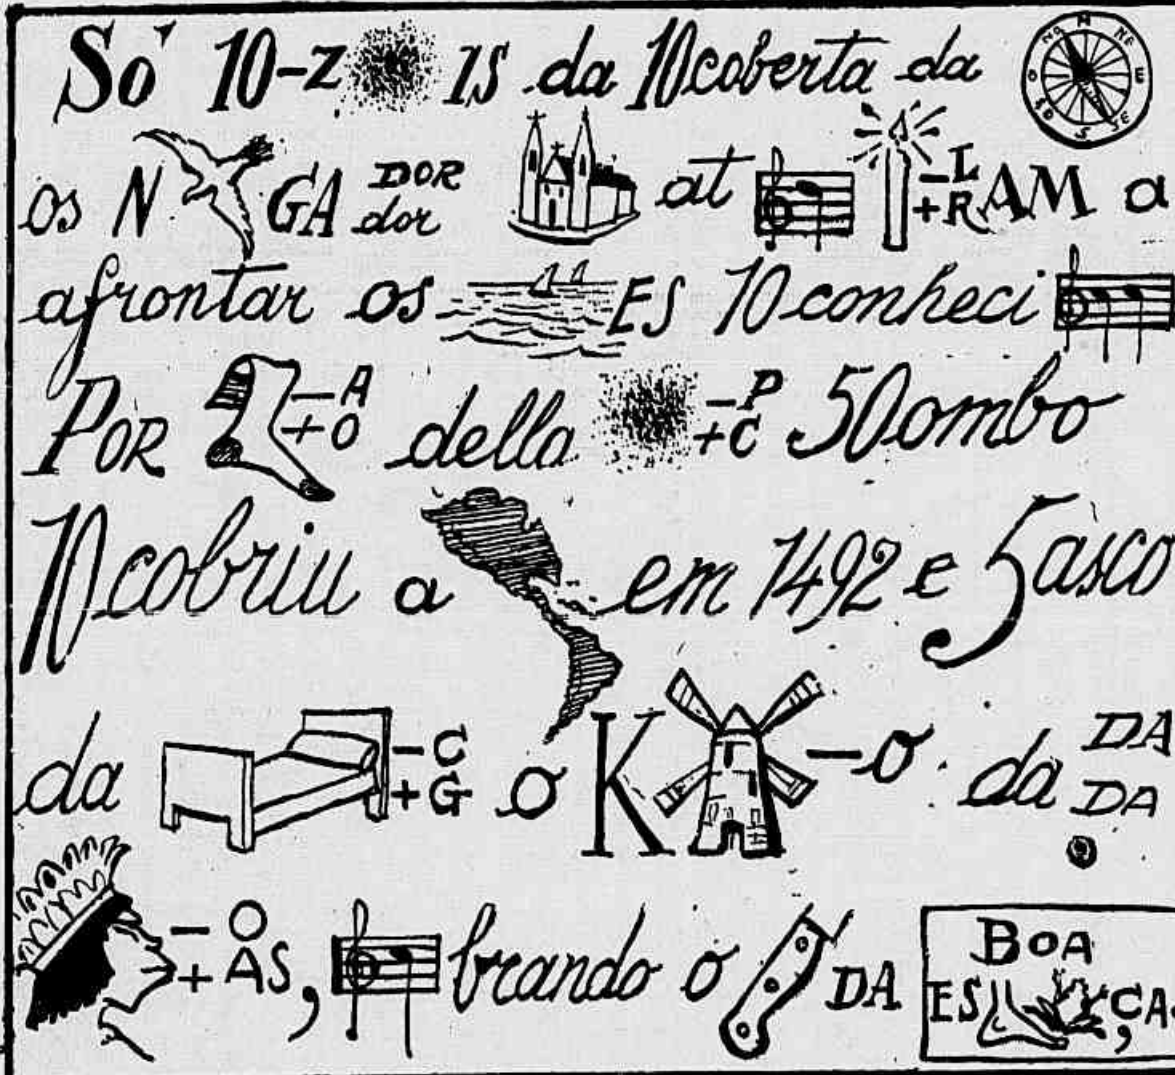 Só 10-Z IS da 10coberta da
os N GA DOR dor at -L +R AM a
afrontar os ES 10conheci
POR -A +O della -P +C 50ombo
10cobriu a em 1492 e 5asco
da -C +G o K -o da DA DA
-O +AS, brando o DA BOA ES ÇAS